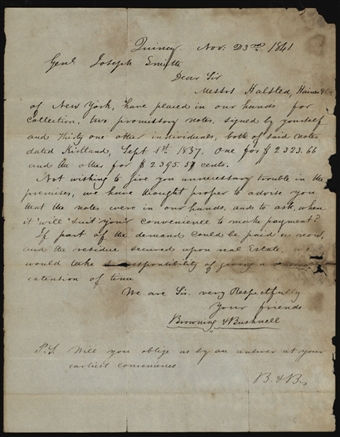 Quincy Nov. 23rd 1841
Genl Joseph Smith
Dear Sir
Messrs Halsted, Haines & Co
of New York, have placed in our hands for
collection, two promissory notes, signed by yourself
and thirty one other individuals, both of said notes
dated Kirtland, Sept 1st 1837. One for $2323.66
and the other for $2395.57 cents.
Not wishing to give you unnecessary trouble in the
premises, we have thought proper to advise you
that the notes were in our hands, and to ask when
it will suit your convenience to make payment?
If part of the demand could be paid in now,
and the residue secured upon real Estate, we
would take responsibility of giving a
extention of time
We are Sir. very Respectfully
Your friends
Browning & Bushnell
P.S. Will you oblige us by an answer at your
earliest convenience
B. & B.